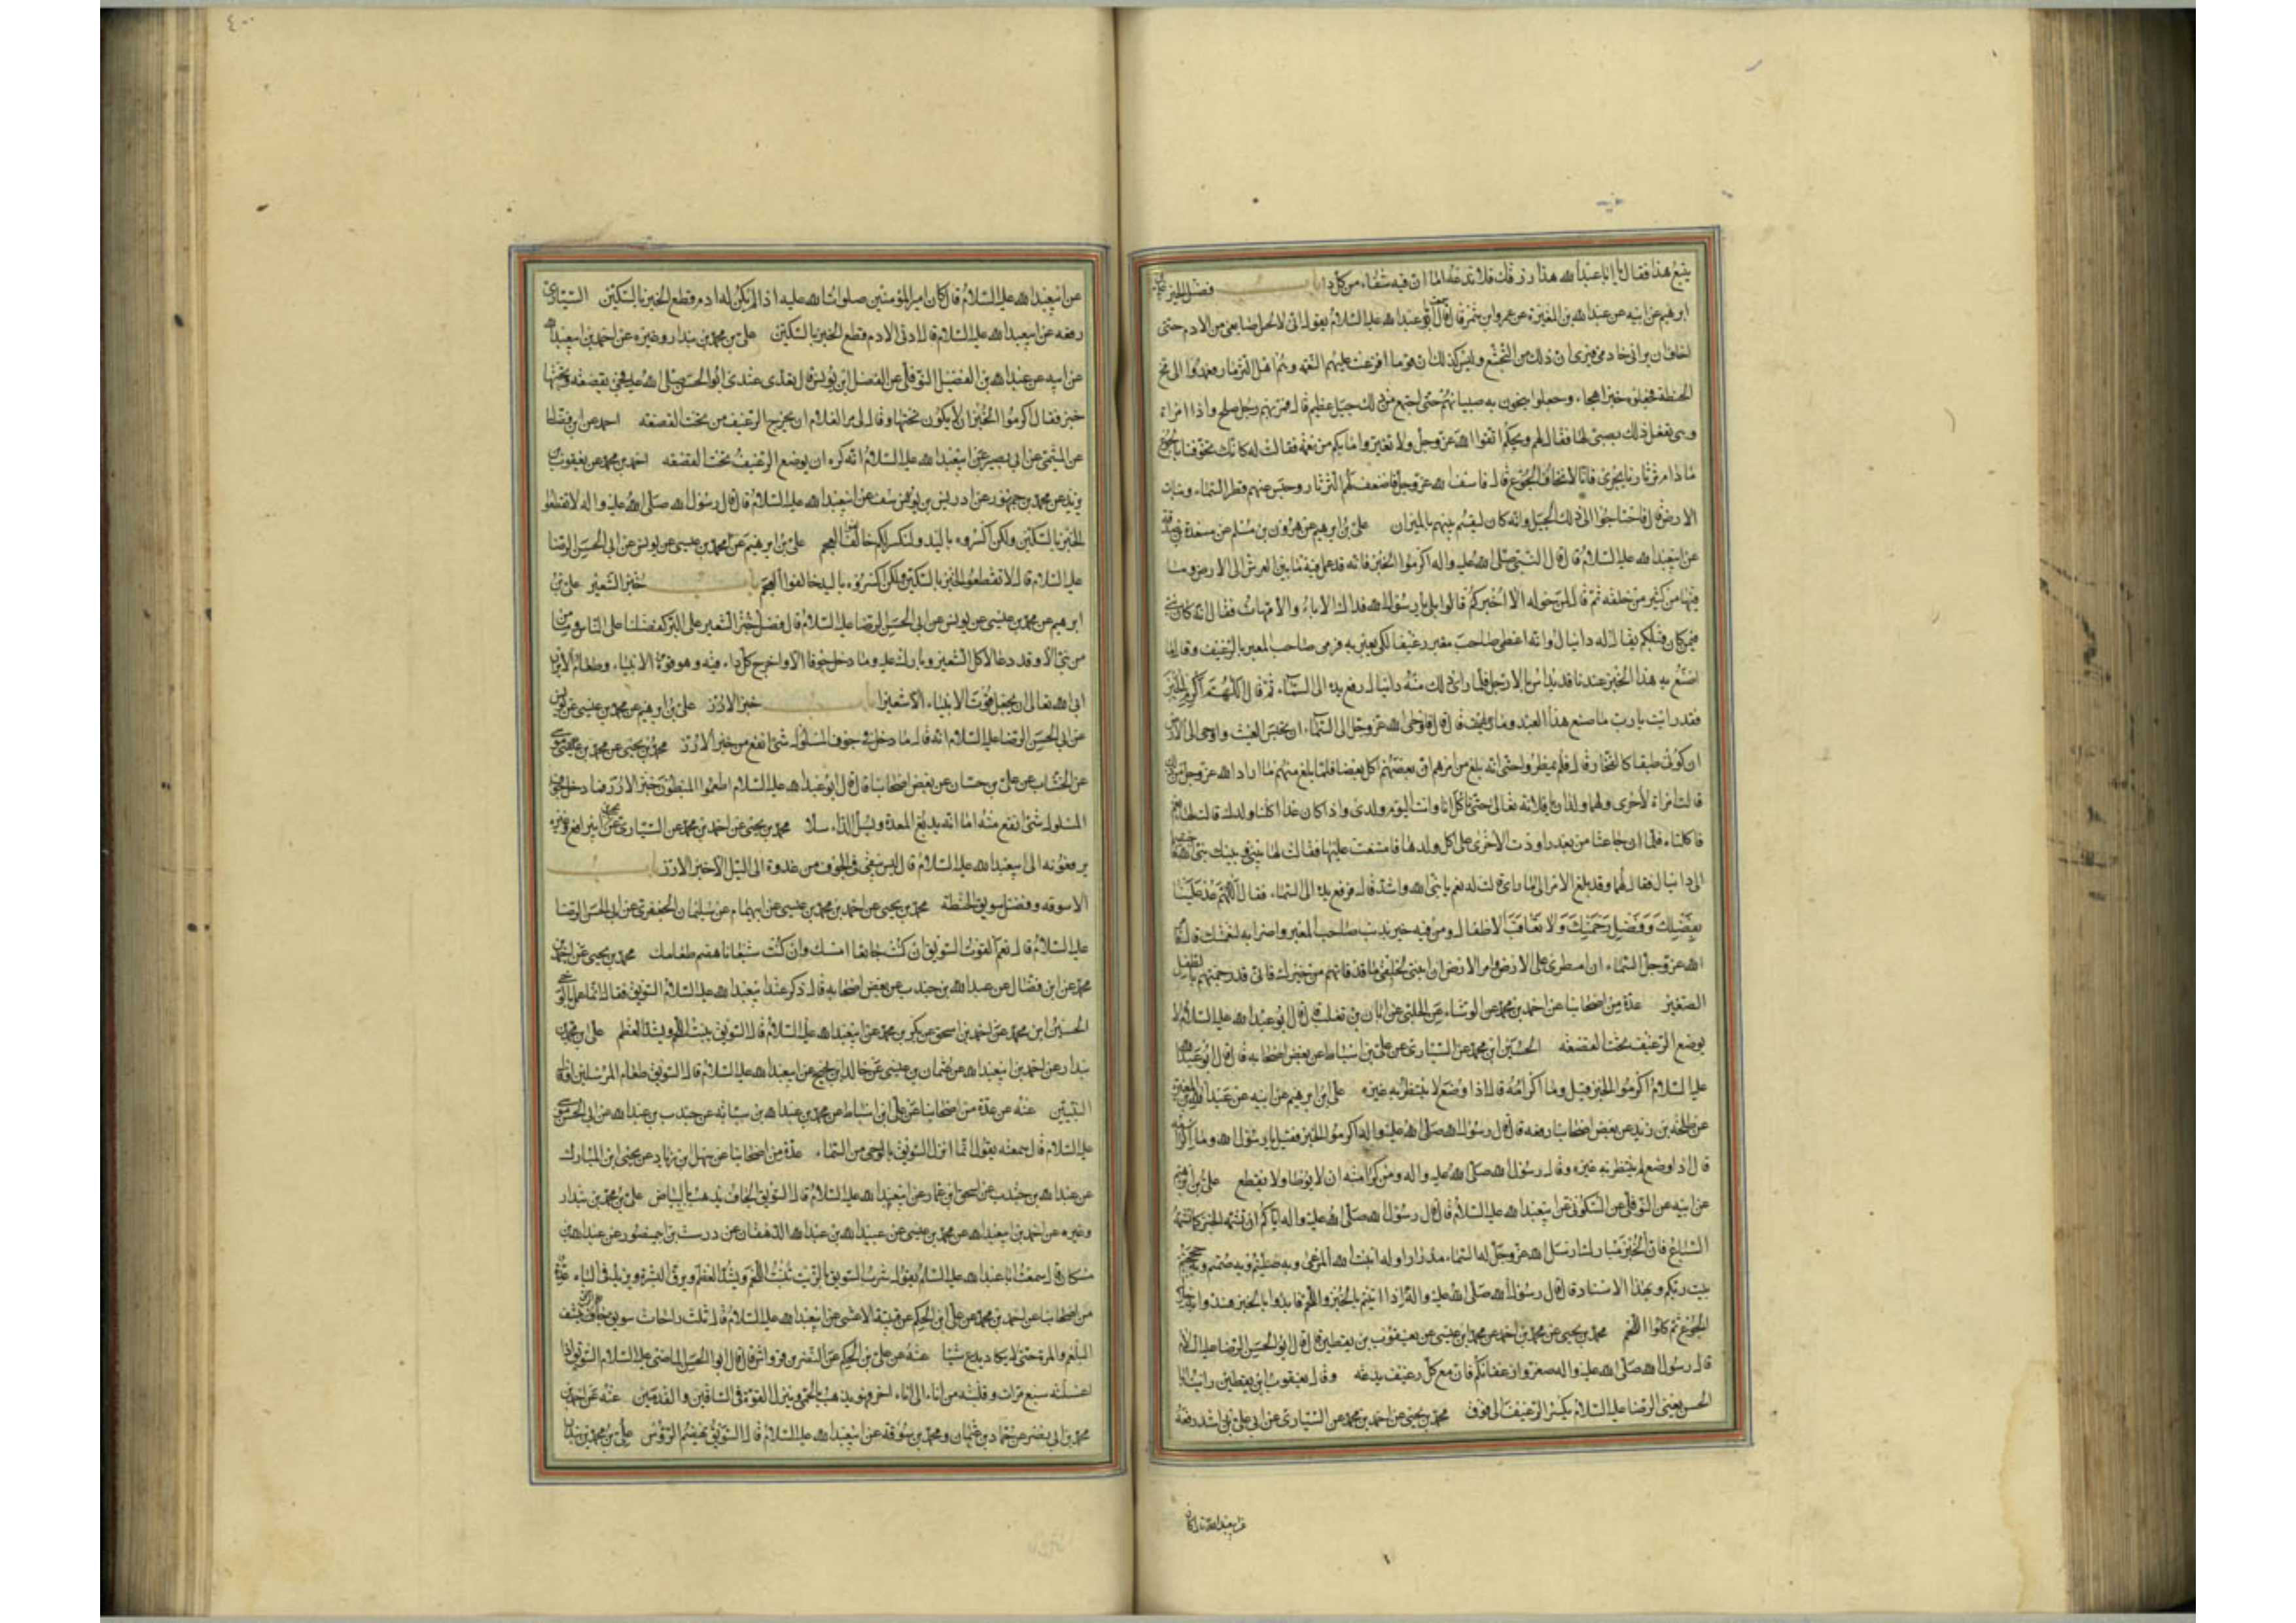 يتبع هذا فقال يا أبا عبد الله هذا رزقك فلا تدعه اما ان فيه شفاء من كل داء باب فضل الخبز علي بن
ابرهيم عن ابيه عن عبد الله بن المغيرة عن عمرو بن شمر قال سمعت أبو عبد الله عليه السلام يقول اني لالحس اصابعي من الادم حتى
اخاف ان يراني خادمي فيرى ان ذلك من التجشع وليس كذلك ان قوما افرغت عليهم النعمة وهم اهل الثرثار فعمدوا الى مخ
الحنطة فجعلوه خبزا هجاء وجعلوا ينجون به صبيانهم حتى اجتمع من ذلك جبل عظيم قال فمر بهم رجل صالح واذا امراة
وهي تفعل ذلك بصبي لها فقال لهم ويحكم اتقوا الله عز وجل ولا تغيروا ما بكم من نعمة فقالت له كانك تخوفنا بالجوع
ما دام ثرثارنا يجري فانا لا نخاف الجوع قال فاسف الله عز وجل فاضعف لهم الثرثار وحبس عنهم قطر السماء ونبات
الارض قال فاحتاجوا الى ذلك الجبل وانه كان ليقسم بينهم بالميزان علي بن ابرهيم عن هرون بن مسلم عن مسعدة بن صدقة
عن ابي عبد الله عليه السلام قال قال النبي صلى الله عليه واله اكرموا الخبز فانه قد عمل فيه ما بين العرش الى الارض وما
فيها من كثير من خلقه ثم قال لمن حوله الا اخبركم قالوا بلى يا رسول الله فداك الاباء والامهات فقال انه كان نبي
فيمن كان قبلكم يقال له دانيال وانه اعطى صاحب معبر رغيفا لكي يعبر به فرمى صاحب المعبر بالرغيف وقال ما
اصنع به هذا الخبز عندنا قد يداس بالارجل فلما راى ذلك منه دانيال رفع يده الى السماء ثم قال اللهم اكرم الخبز
فقد رايت يا رب ما صنع هذا العبد وما قال قال فاوحى الله عز وجل الى السماء ان تحبس الغيث واوحى الى الارض
ان كوني طبقا كالفخار قال فلم يمطروا حتى انه بلغ من امرهم ان بعضهم اكل بعضا فلما بلغ منهم ما اراد الله عز وجل من ذلك
قالت امراة لاخرى ولهما ولدان يا فلانة تعالى حتى ناكل انا وانت اليوم ولدي واذا كان غدا اكلنا ولدك قالت لها نعم
فاكلتاه فلما ان جاعتا من بعد راودت الاخرى على اكل ولدها فامتنعت عليها فقالت لها بيني وبينك نبي الله فاختصما
الى دانيال فقال لهما وقد بلغ الامر الى ما ارى قالت له نعم يا نبي الله واشد قال فرفع يده الى السماء فقال اللهم عد علينا
بفضلك وفضل رحمتك ولا تعاقب الاطفال ومن فيه خير بذنب صاحب المعبر واضرابه لنعمتك قال فامر
الله عز وجل السماء ان امطري على الارض وامر الارض ان انبتي لخلقي ما قد فاتهم من خيرك فاني قد رحمتهم بالطفل
الصغير عدة من اصحابنا عن احمد بن محمد عن الوشاء عن الميثمي عن ابان بن تغلب قال قال ابو عبد الله عليه السلام لا
يوضع الرغيف تحت القصعة الحسين بن محمد عن السياري عن علي بن اسباط عن بعض اصحابه قال قال ابو عبد الله
عليه السلام اكرموا الخبز فقيل وما اكرامه قال اذا وضع لا ينتظر به غيره علي بن ابرهيم عن ابيه عن عبد الله بن المغيرة
عن طلحة بن زيد عن بعض اصحابنا رفعه قال قال رسول الله صلى الله عليه واله اكرموا الخبز فقيل يا رسول الله وما اكرامه
قال اذا وضع لم ينتظر به غيره وقال رسول الله صلى الله عليه واله ومن كرامته ان لا يوطا ولا يقطع علي بن ابرهيم
عن ابيه عن النوفلي عن السكوني عن ابي عبد الله عليه السلام قال قال رسول الله صلى الله عليه واله اياكم ان تشموا الخبز كما تشمه
السباع فان الخبز مبارك ارسل الله عز وجل له السماء مدرارا وله انبت الله المرعى وبه صليتم وبه صمتم وبه حججتم
بيت ربكم وبهذا الاسناد قال قال رسول الله صلى الله عليه واله اذا اتيتم بالخبز واللحم فابدؤا بالخبز فسدوا به خلال
الجوع ثم كلوا اللحم محمد بن يحيى عن محمد بن احمد عن محمد بن عيسى عن يعقوب بن يقطين قال قال ابو الحسن الرضا عليه السلام
قال رسول الله صلى الله عليه واله صغروا رغفانكم فان مع كل رغيف بركة وقال يعقوب بن يقطين رايت ابا
الحسن يعني الرضا عليه السلام يكسر الرغيف الى فوق محمد بن يحيى عن احمد بن محمد عن السياري عن ابي علي بن راشد رفعه
عن ابي عبد الله قال كان
عن ابي عبد الله عليه السلام قال كان امير المؤمنين صلوات الله عليه اذا لم يكن له ادم قطع الخبز بالسكين السياري
رفعه عن ابي عبد الله عليه السلام قال ادنى الادم قطع الخبز بالسكين علي بن محمد بن بندار وغيره عن احمد بن ابي عبد الله
عن ابيه عن عبد الله بن الفضل النوفلي عن الفضل بن يونس قال تغدى عندي ابو الحسن صلى الله عليه فجئ بقصعة وتحتها
خبز فقال اكرموا الخبز ان لا يكون تحتها وقال لي مر الغلام ان يخرج الرغيف من تحت القصعة احمد عن ابن فضال
عن الميثمي عن ابي بصير عن ابي عبد الله عليه السلام انه كره ان يوضع الرغيف تحت القصعة احمد بن محمد عن يعقوب بن
يزيد عن محمد بن جمهور عن ادريس بن يوسف عن ابي عبد الله عليه السلام قال قال رسول الله صلى الله عليه واله لا تقطعوا
الخبز بالسكين ولكن اكسروه باليد وليكسر لكم خالفوا العجم علي بن ابرهيم عن محمد بن عيسى عن يونس عن ابي الحسن الرضا
عليه السلام قال لا تقطعوا الخبز بالسكين ولكن اكسروه باليد خالفوا العجم باب خبز الشعير علي بن
ابرهيم عن محمد بن عيسى عن يونس عن ابي الحسن الرضا عليه السلام قال فضل خبز الشعير على البر كفضلنا على الناس وما من
من نبي الا وقد دعا لاكل الشعير وبارك عليه وما دخل جوفا الا واخرج كل داء فيه وهو قوت الانبياء وطعام الابرار
ابى الله تعالى ان يجعل قوت الانبياء الا شعيرا باب خبز الارز علي بن ابرهيم عن محمد بن عيسى عن يونس
عن ابي الحسن الرضا عليه السلام انه قال ما دخل في جوف المسلول شئ انفع من خبز الارز محمد بن يحيى عن محمد بن موسى
عن الخشاب عن علي بن حسان عن بعض اصحابنا قال قال ابو عبد الله عليه السلام اطعموا المبطون خبز الارز فما دخل جوف
المسلول شئ انفع منه اما انه يدبغ المعدة ويسل الداء سلا محمد بن يحيى عن احمد بن محمد عن السياري عن يحيى بن ابي رافع وغيره
يرفعونه الى ابي عبد الله عليه السلام قال ليس يبقى في الجوف من غدوة الى الليل الا خبز الارز باب
الاسوقة وفضل سويق الحنطة محمد بن يحيى عن احمد بن محمد بن عيسى عن ابي همام عن سليمان الجعفري عن ابي الحسن الرضا
عليه السلام قال نعم القوت السويق ان كنت جائعا امسك وان كنت شبعانا هضم طعامك محمد بن يحيى عن احمد بن
محمد عن ابن فضال عن عبد الله بن جندب عن بعض اصحابه قال ذكر عند ابي عبد الله عليه السلام السويق فقال انما عمل بالوحي
الحسين بن محمد عن احمد بن اسحق عن بكر بن محمد عن ابي عبد الله عليه السلام قال السويق ينبت اللحم ويشد العظم علي بن محمد بن
بندار عن احمد بن ابي عبد الله عن عثمان بن عيسى عن خالد بن نجيح عن ابي عبد الله عليه السلام قال السويق طعام المرسلين او قال
النبيين عنه عن عدة من اصحابنا عن علي بن اسباط عن محمد بن عبد الله بن سيابة عن جندب بن عبد الله عن ابي الحسن موسى
عليه السلام قال سمعته يقول انما انزل السويق بالوحي من السماء عدة من اصحابنا عن سهل بن زياد عن يحيى بن المبارك
عن عبد الله بن جندب عن اسحق بن عمار عن ابي عبد الله عليه السلام قال السويق الجاف يذهب بالبياض علي بن محمد بن بندار
وغيره عن احمد بن ابي عبد الله عن محمد بن عيسى عن عبيد الله بن عبد الله الدهقان عن درست بن ابي منصور عن عبد الله بن
مسكان قال سمعت ابا عبد الله عليه السلام يقول شرب السويق بالزيت ينبت اللحم ويشد العظم ويرق البشرة ويزيد في الباه عدة
من اصحابنا عن احمد بن محمد عن علي بن الحكم عن قتيبة الاعشى عن ابي عبد الله عليه السلام قال ثلث راحات سويق جاف على الريق ينشف
البلغم والمرة حتى لا يكاد يدع شيئا عنه عن علي بن الحكم عن النضر بن قرواش قال قال ابو الحسن الماضي عليه السلام السويق اذا
غسلته سبع مرات وقلبته من اناء الى اناء اخر فهو يذهب بالحمى وينزل القوة في الساقين والقدمين عنه عن احمد بن
محمد بن ابي نصر عن حماد بن عثمان ومحمد بن سوقة عن ابي عبد الله عليه السلام قال السويق يهضم الرؤس علي بن محمد بن بندار